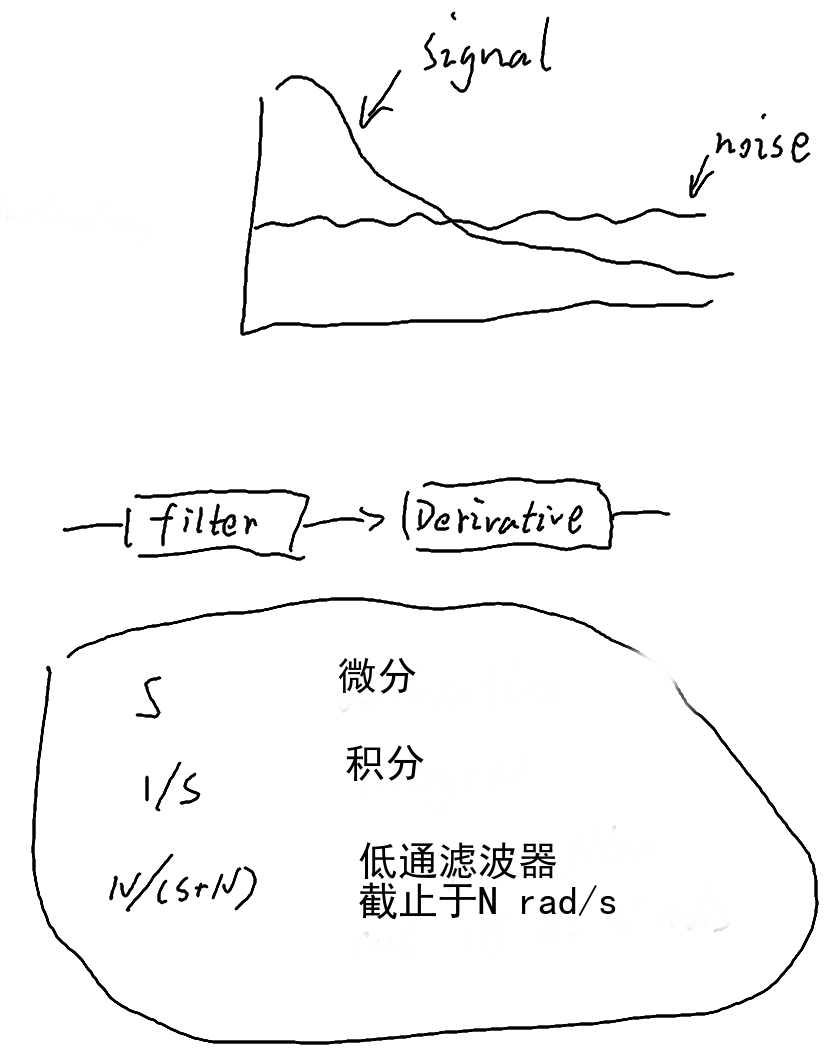 signal
noise
filter
Derivative
S 微分
1/S 积分
N/(S+N) 低通滤波器
截止于N rad/s